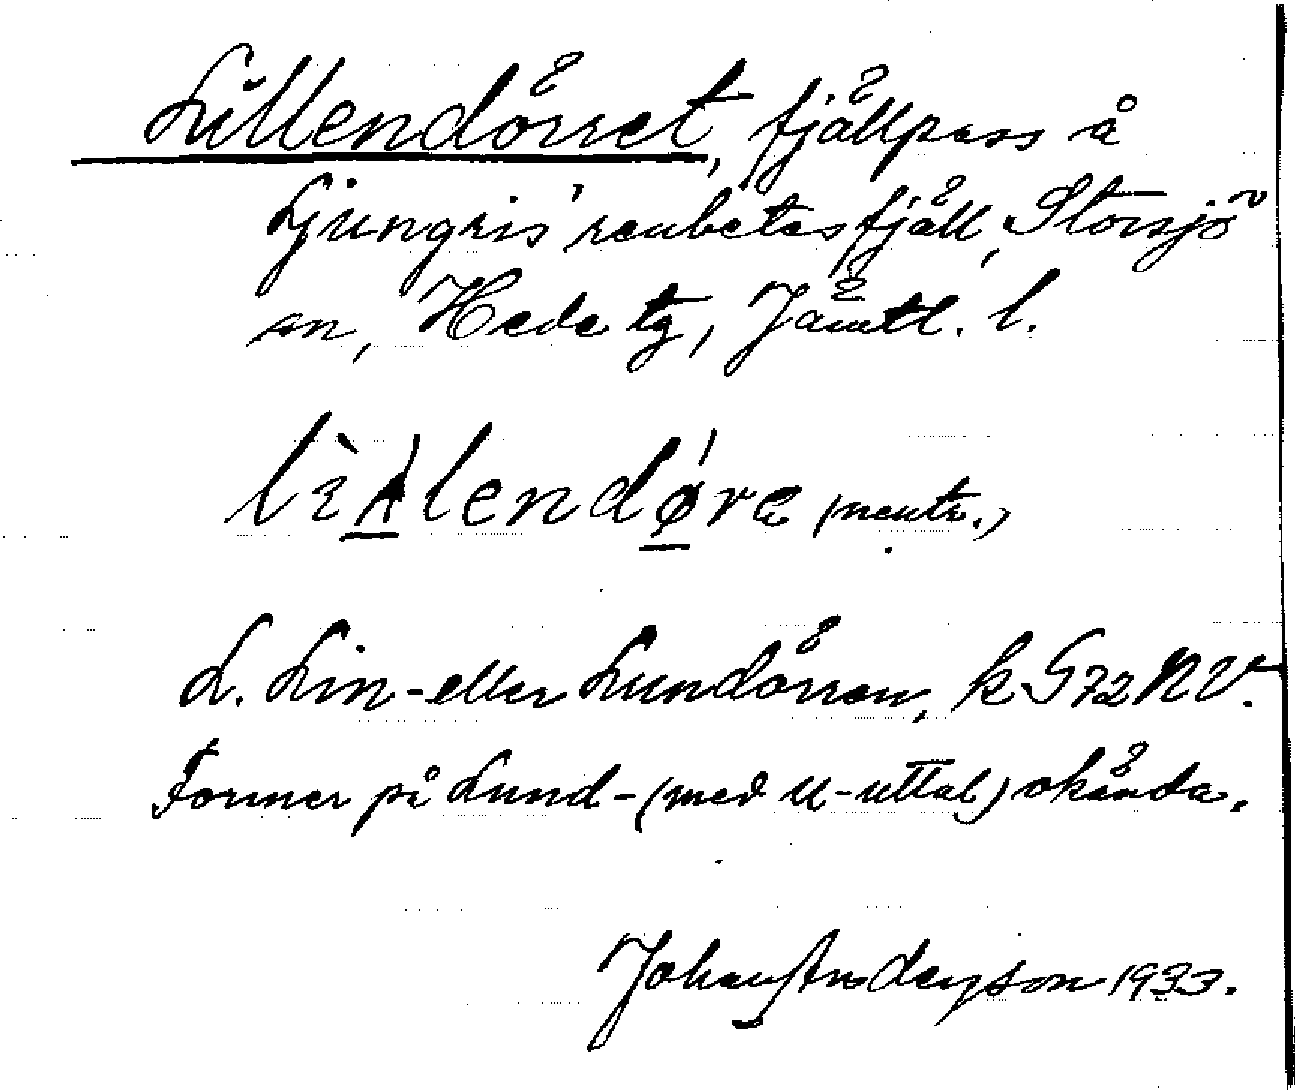 Lillendörret, fjällpass å
Ljungris' renbetesfjäll, Storsjö
sn, Hede tg, Jämtl. l.
(neutr.)
L. Lin- eller Lundörren, k. G 72 NV.
Former på Lund- (med u-uttal) okända.
Johan Anderson 1933.